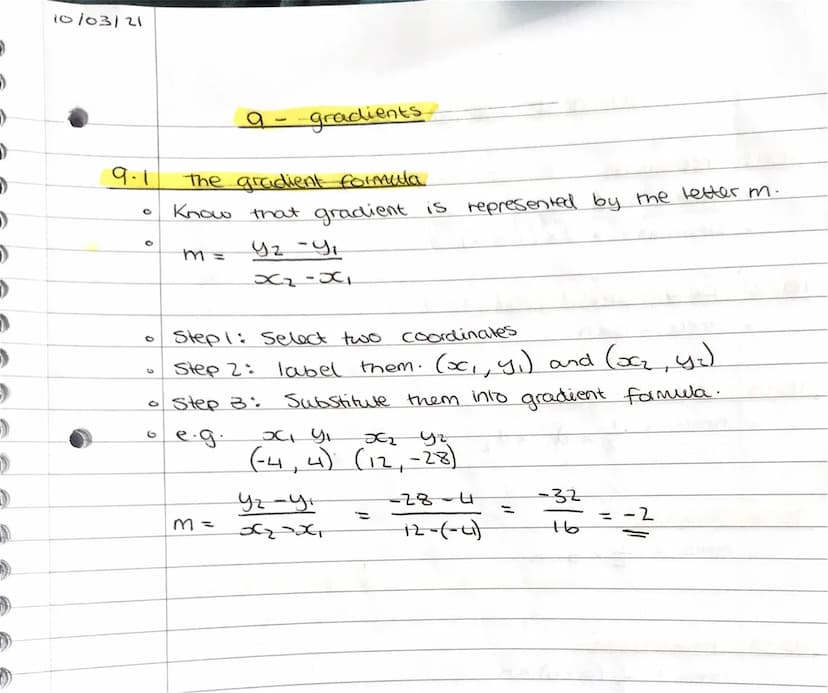 10/03/21
9 - gradients
9.1 The gradient formula
◦ Know that gradient is represented by the letter m.
◦ m = (y₂ - y₁) / (x₂ - x₁)
◦ Step 1: Select two coordinates
◦ Step 2: label them. (x₁, y₁) and (x₂, y₂)
◦ Step 3: Substitute them into gradient formula.
◦ e.g. x₁ y₁ x₂ y₂
(-4, 4) (12, -28)
m = (y₂ - y₁) / (x₂ - x₁) = (-28 - 4) / (12 - (-4)) = -32 / 16 = -2